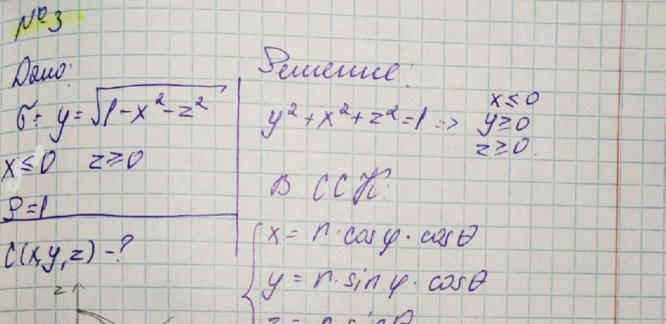 №3
Дано:
σ: y = √1-x²-z²
x ≤ 0  z ≥ 0
ρ = 1
C(x,y,z) - ?
z
Решение:
y² + x² + z² = 1 => x ≤ 0
y ≥ 0
z ≥ 0
В ССК:
x = r · cosφ · cosθ
y = r · sinφ · cosθ
z = r · sinθ